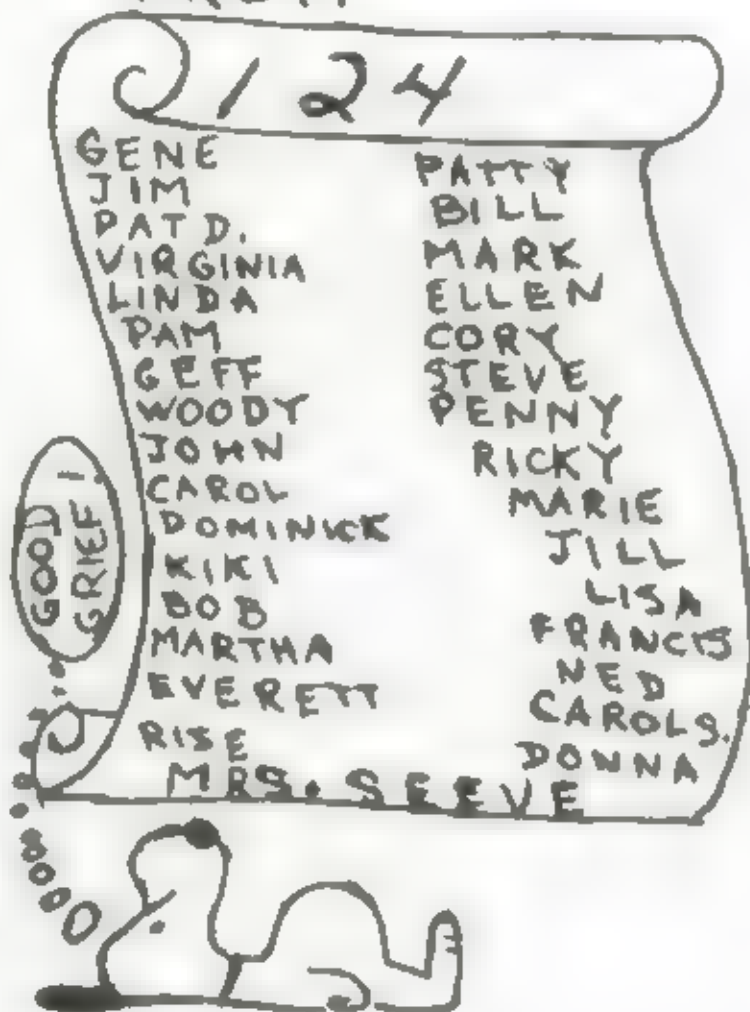 124
GENE
JIM
PAT D.
VIRGINIA
LINDA
PAM
GEFF
WOODY
JOHN
CAROL
DOMINICK
KIKI
BOB
MARTHA
EVERETT
RISE
PATTY
BILL
MARK
ELLEN
CORY
STEVE
PENNY
RICKY
MARIE
JILL
LISA
FRANCIS
NED
CAROL S.
DONNA
MRS. SEEVE
GOOD
GRIEF!